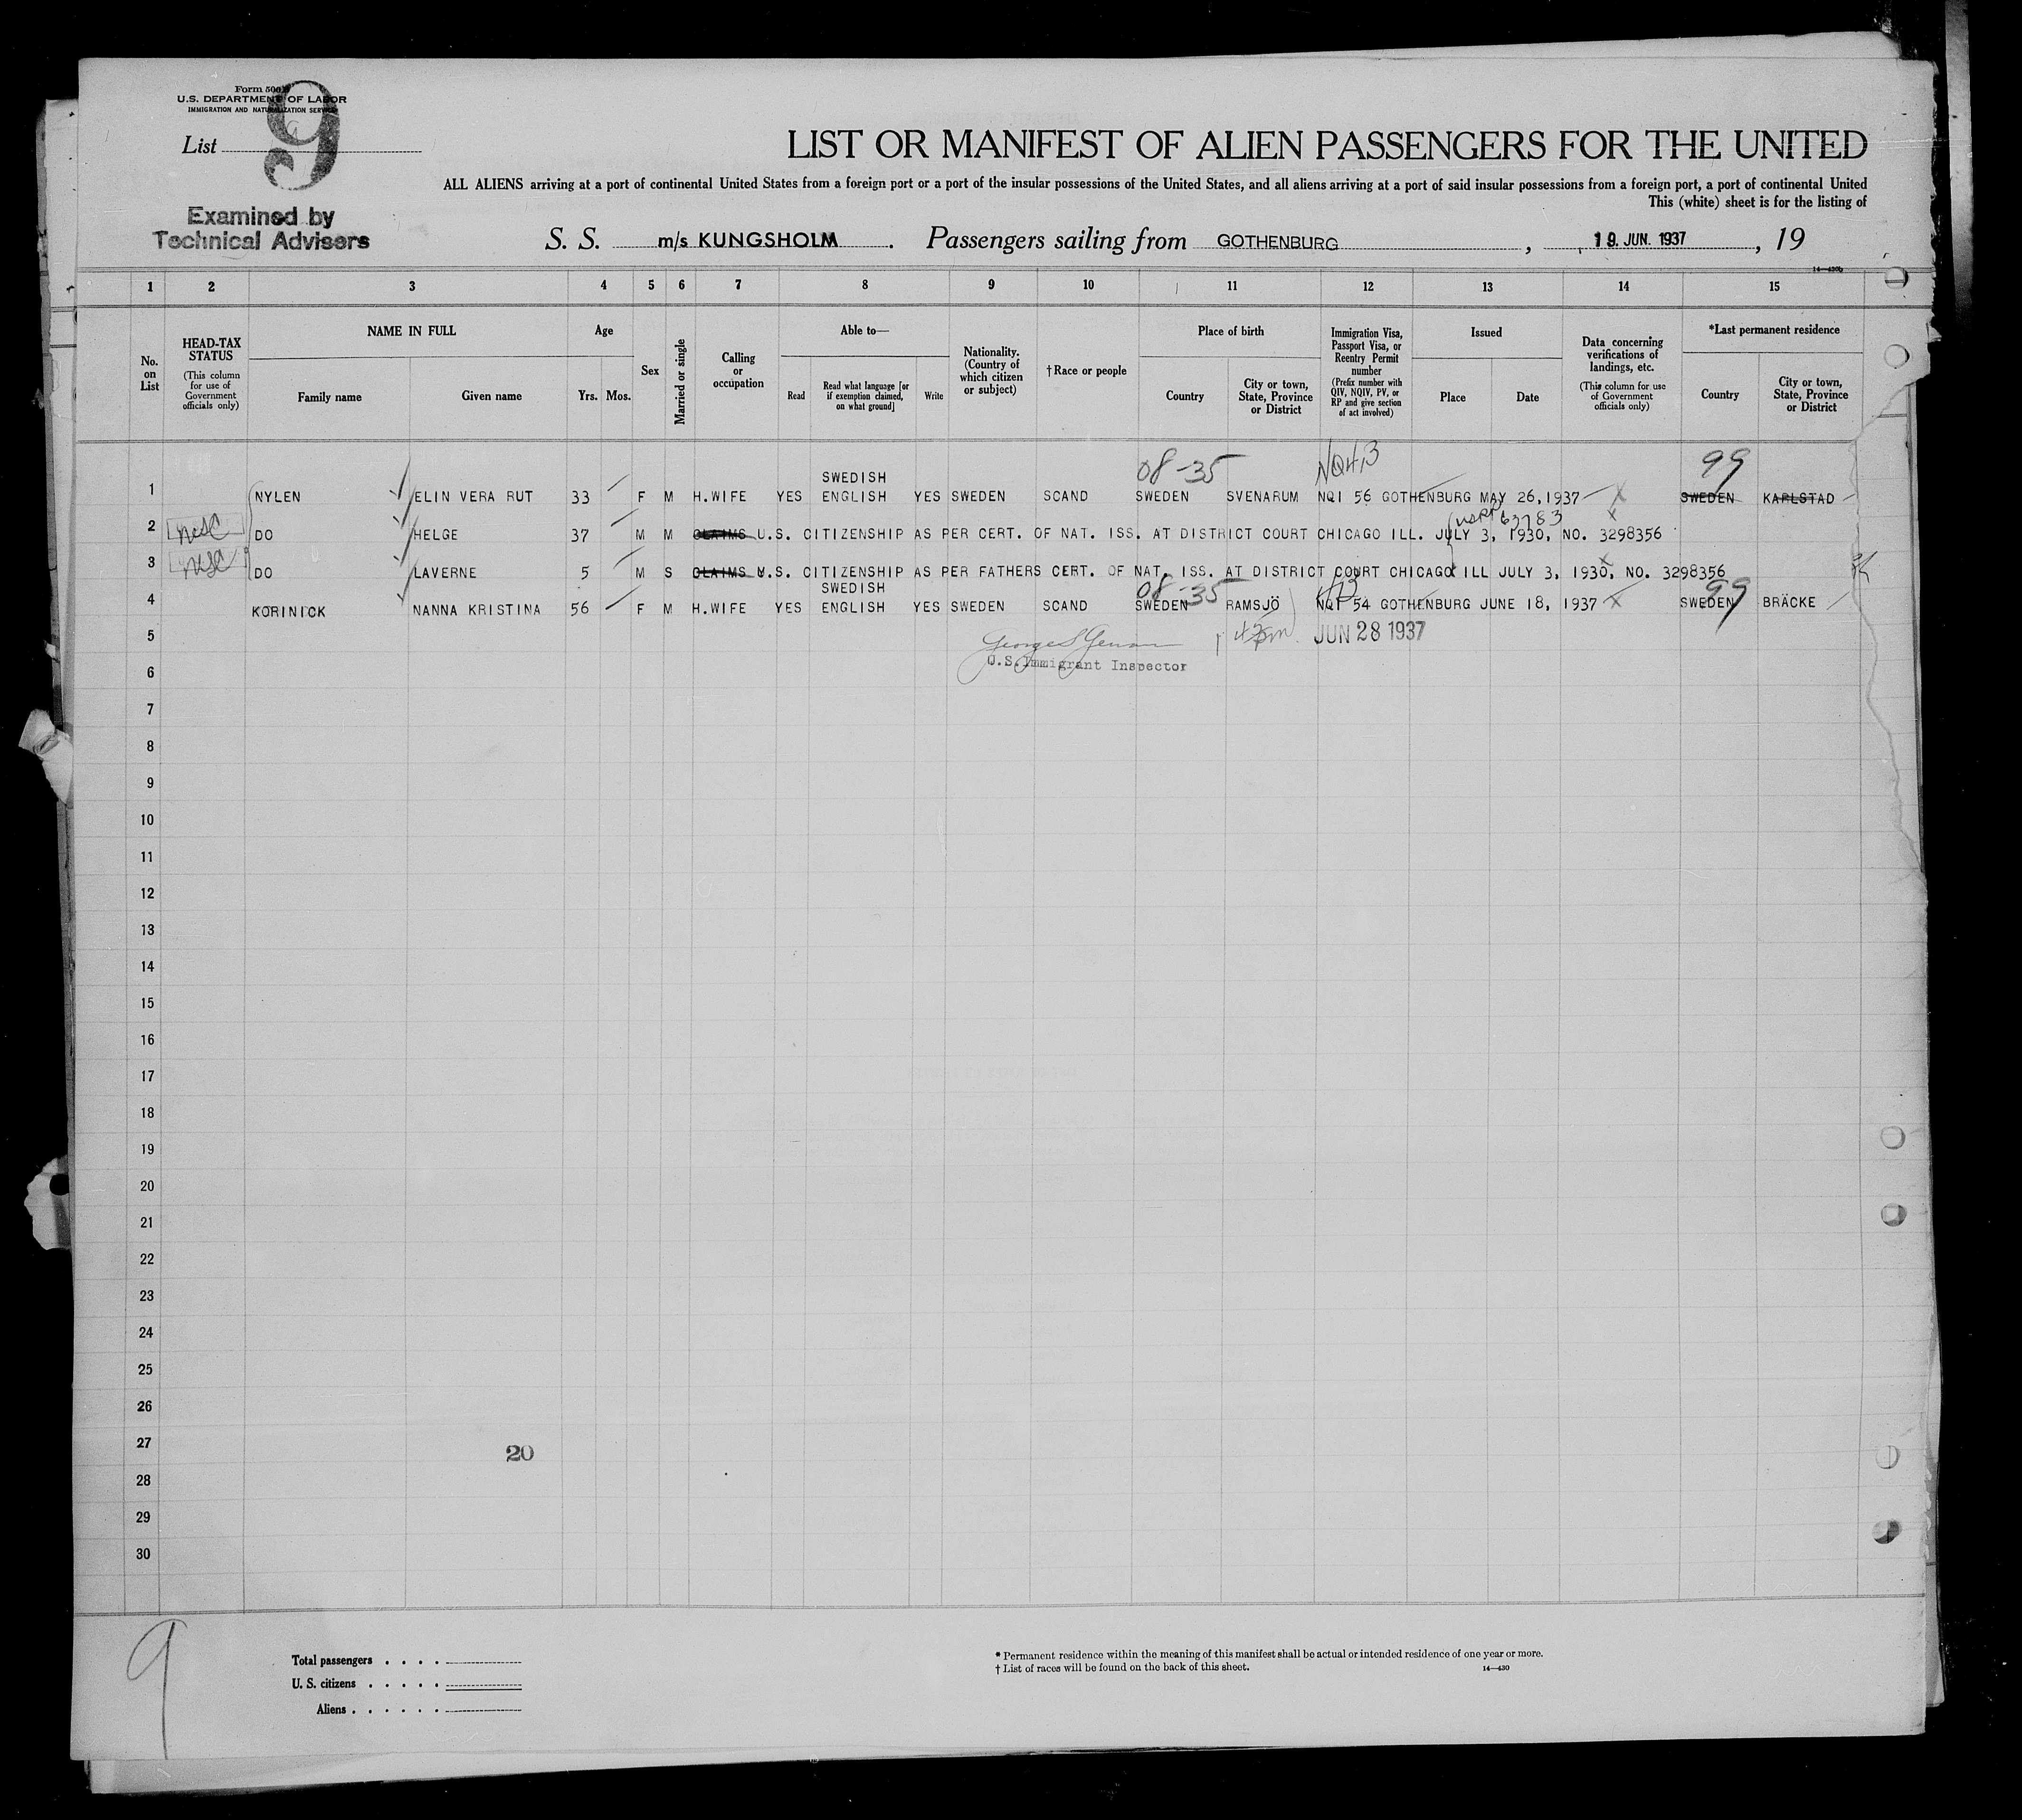 Form 500
U.S. DEPARTMENT OF LABOR
IMMIGRATION AND NATURALIZATION SERVICE
List 9
Examined by
Technical Advisers
LIST OR MANIFEST OF ALIEN PASSENGERS FOR THE UNITED
ALL ALIENS arriving at a port of continental United States from a foreign port or a port of the insular possessions of the United States, and all aliens arriving at a port of said insular possessions from a foreign port, a port of continental United
This (white) sheet is for the listing of
S. S. m/s KUNGSHOLM . Passengers sailing from GOTHENBURG , 19. JUN. 1937 , 19
14—430b
1 2 3 4 5 6 7 8 9 10 11 12 13 14 15
No. on List
HEAD-TAX STATUS (This column for use of Government officials only)
NAME IN FULL
Family name Given name
Age
Yrs. Mos.
Sex
Married or single
Calling or occupation
Able to—
Read Read what language [or if exemption claimed, on what ground] Write
Nationality. (Country of which citizen or subject)
† Race or people
Place of birth
Country City or town, State, Province or District
Immigration Visa, Passport Visa, or Reentry Permit number (Prefix number with QIV, NQIV, PV, or RP and give section of act involved)
Issued
Place Date
Data concerning verifications of landings, etc. (This column for use of Government officials only)
*Last permanent residence
Country City or town, State, Province or District
08-35 99
SWEDISH
1 NYLEN ELIN VERA RUT 33 F M H.WIFE YES ENGLISH YES SWEDEN SCAND SWEDEN SVENARUM NQI 56 GOTHENBURG MAY 26,1937 X SWEDEN KARLSTAD
63783 X
2 DO HELGE 37 M M CLAIMS U.S. CITIZENSHIP AS PER CERT. OF NAT. ISS. AT DISTRICT COURT CHICAGO ILL. JULY 3, 1930, NO. 3298356
3 DO LAVERNE 5 M S CLAIMS U.S. CITIZENSHIP AS PER FATHERS CERT. OF NAT. ISS. AT DISTRICT COURT CHICAGO ILL JULY 3, 1930, NO. 3298356
SWEDISH 08-35 99
4 KORINICK NANNA KRISTINA 56 F M H.WIFE YES ENGLISH YES SWEDEN SCAND SWEDEN RAMSJÖ NQI 54 GOTHENBURG JUNE 18, 1937 X SWEDEN BRÄCKE
5 JUN 28 1937
U.S. Immigrant Inspector
6
7
8
9
10
11
12
13
14
15
16
17
18
19
20
21
22
23
24
25
26
27
20
28
29
30
9
Total passengers . . . .
U. S. citizens . . . . .
Aliens . . . . . .
* Permanent residence within the meaning of this manifest shall be actual or intended residence of one year or more.
† List of races will be found on the back of this sheet. 14—430